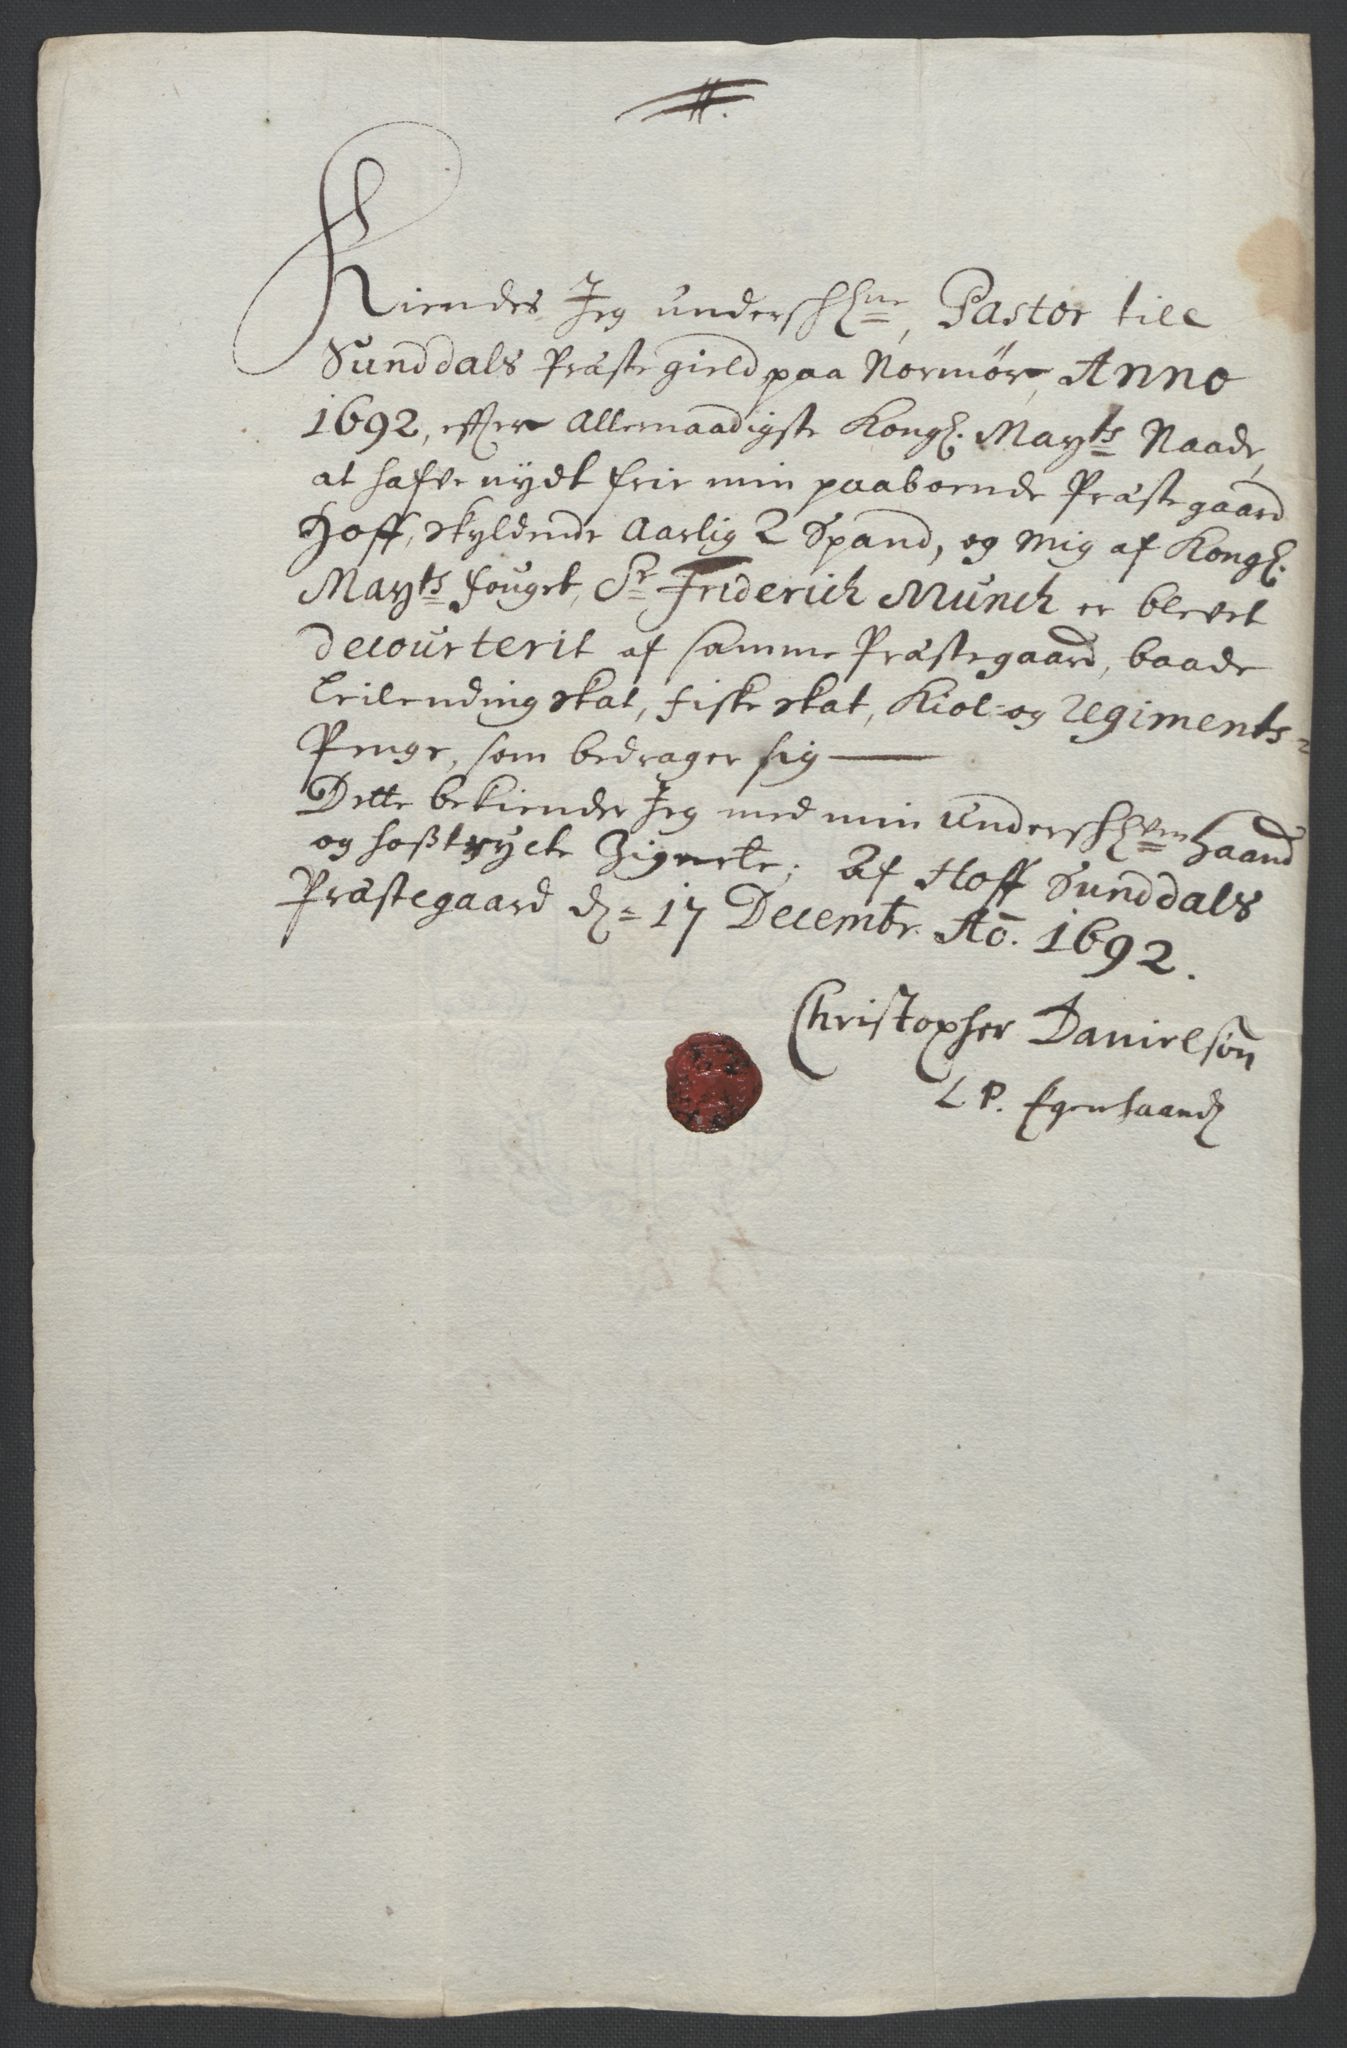 Kiendes Jeg underschne, Pastor till
Sunddals Præstegield paa Normør, Anno
1692, efter Allernaadigste Kongl. Mayts Naade,
at hafve nydt frie min paaboende Præstegaard
Hoff, skyldende Aarlig 2 Spand, og mig af Kongl.
Mayts fouget, Sr Friderich Munch er blevet
decourterit af samme Præstegaard, baade
Leilending skat, fiske skat, Kiol- og Regiments-
Penge, som bedrager sig
Dette bekiender Jeg med min underschrvne Haand
og hoßtrycte Zignete; Af Hoff Sunddals
Præstegaard d. 17 Decembr. Ao. 1692.
Christopher Danielsøn
L P. Egenhaand